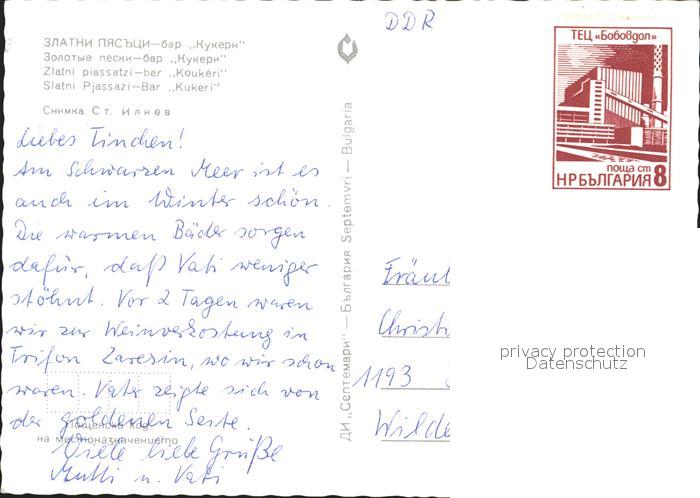 DDR
ТЕЦ «Бобовдол»
поща ст
НРБЪЛГАРИЯ 8
ЗЛАТНИ ПЯСЪЦИ—бар „Кукери"
Золотые пески—бар „Кукери"
Zlatni piassatzi—ber „Koukéri"
Slatni Pjassazi—Bar „Kukeri"
Снимка Ст. Илиев
Liebes Tinchen!
Am Schwarzen Meer ist es
auch im Winter schön.
Die warmen Bäder sorgen
dafür, daß Vati weniger
stöhnt. Vor 2 Tagen waren
wir zur Weinverkostung in
Trifon Zaresin, wo wir schon
waren. Vater zeigte sich von
der goldenen Seite.
Viele liebe Grüße
Mutti u. Vati
Пощенски код
на местоназначението
ДИ „Септември" — България Septemvri — Bulgaria
Fräul
Christ
1193
Wilde
privacy protection
Datenschutz